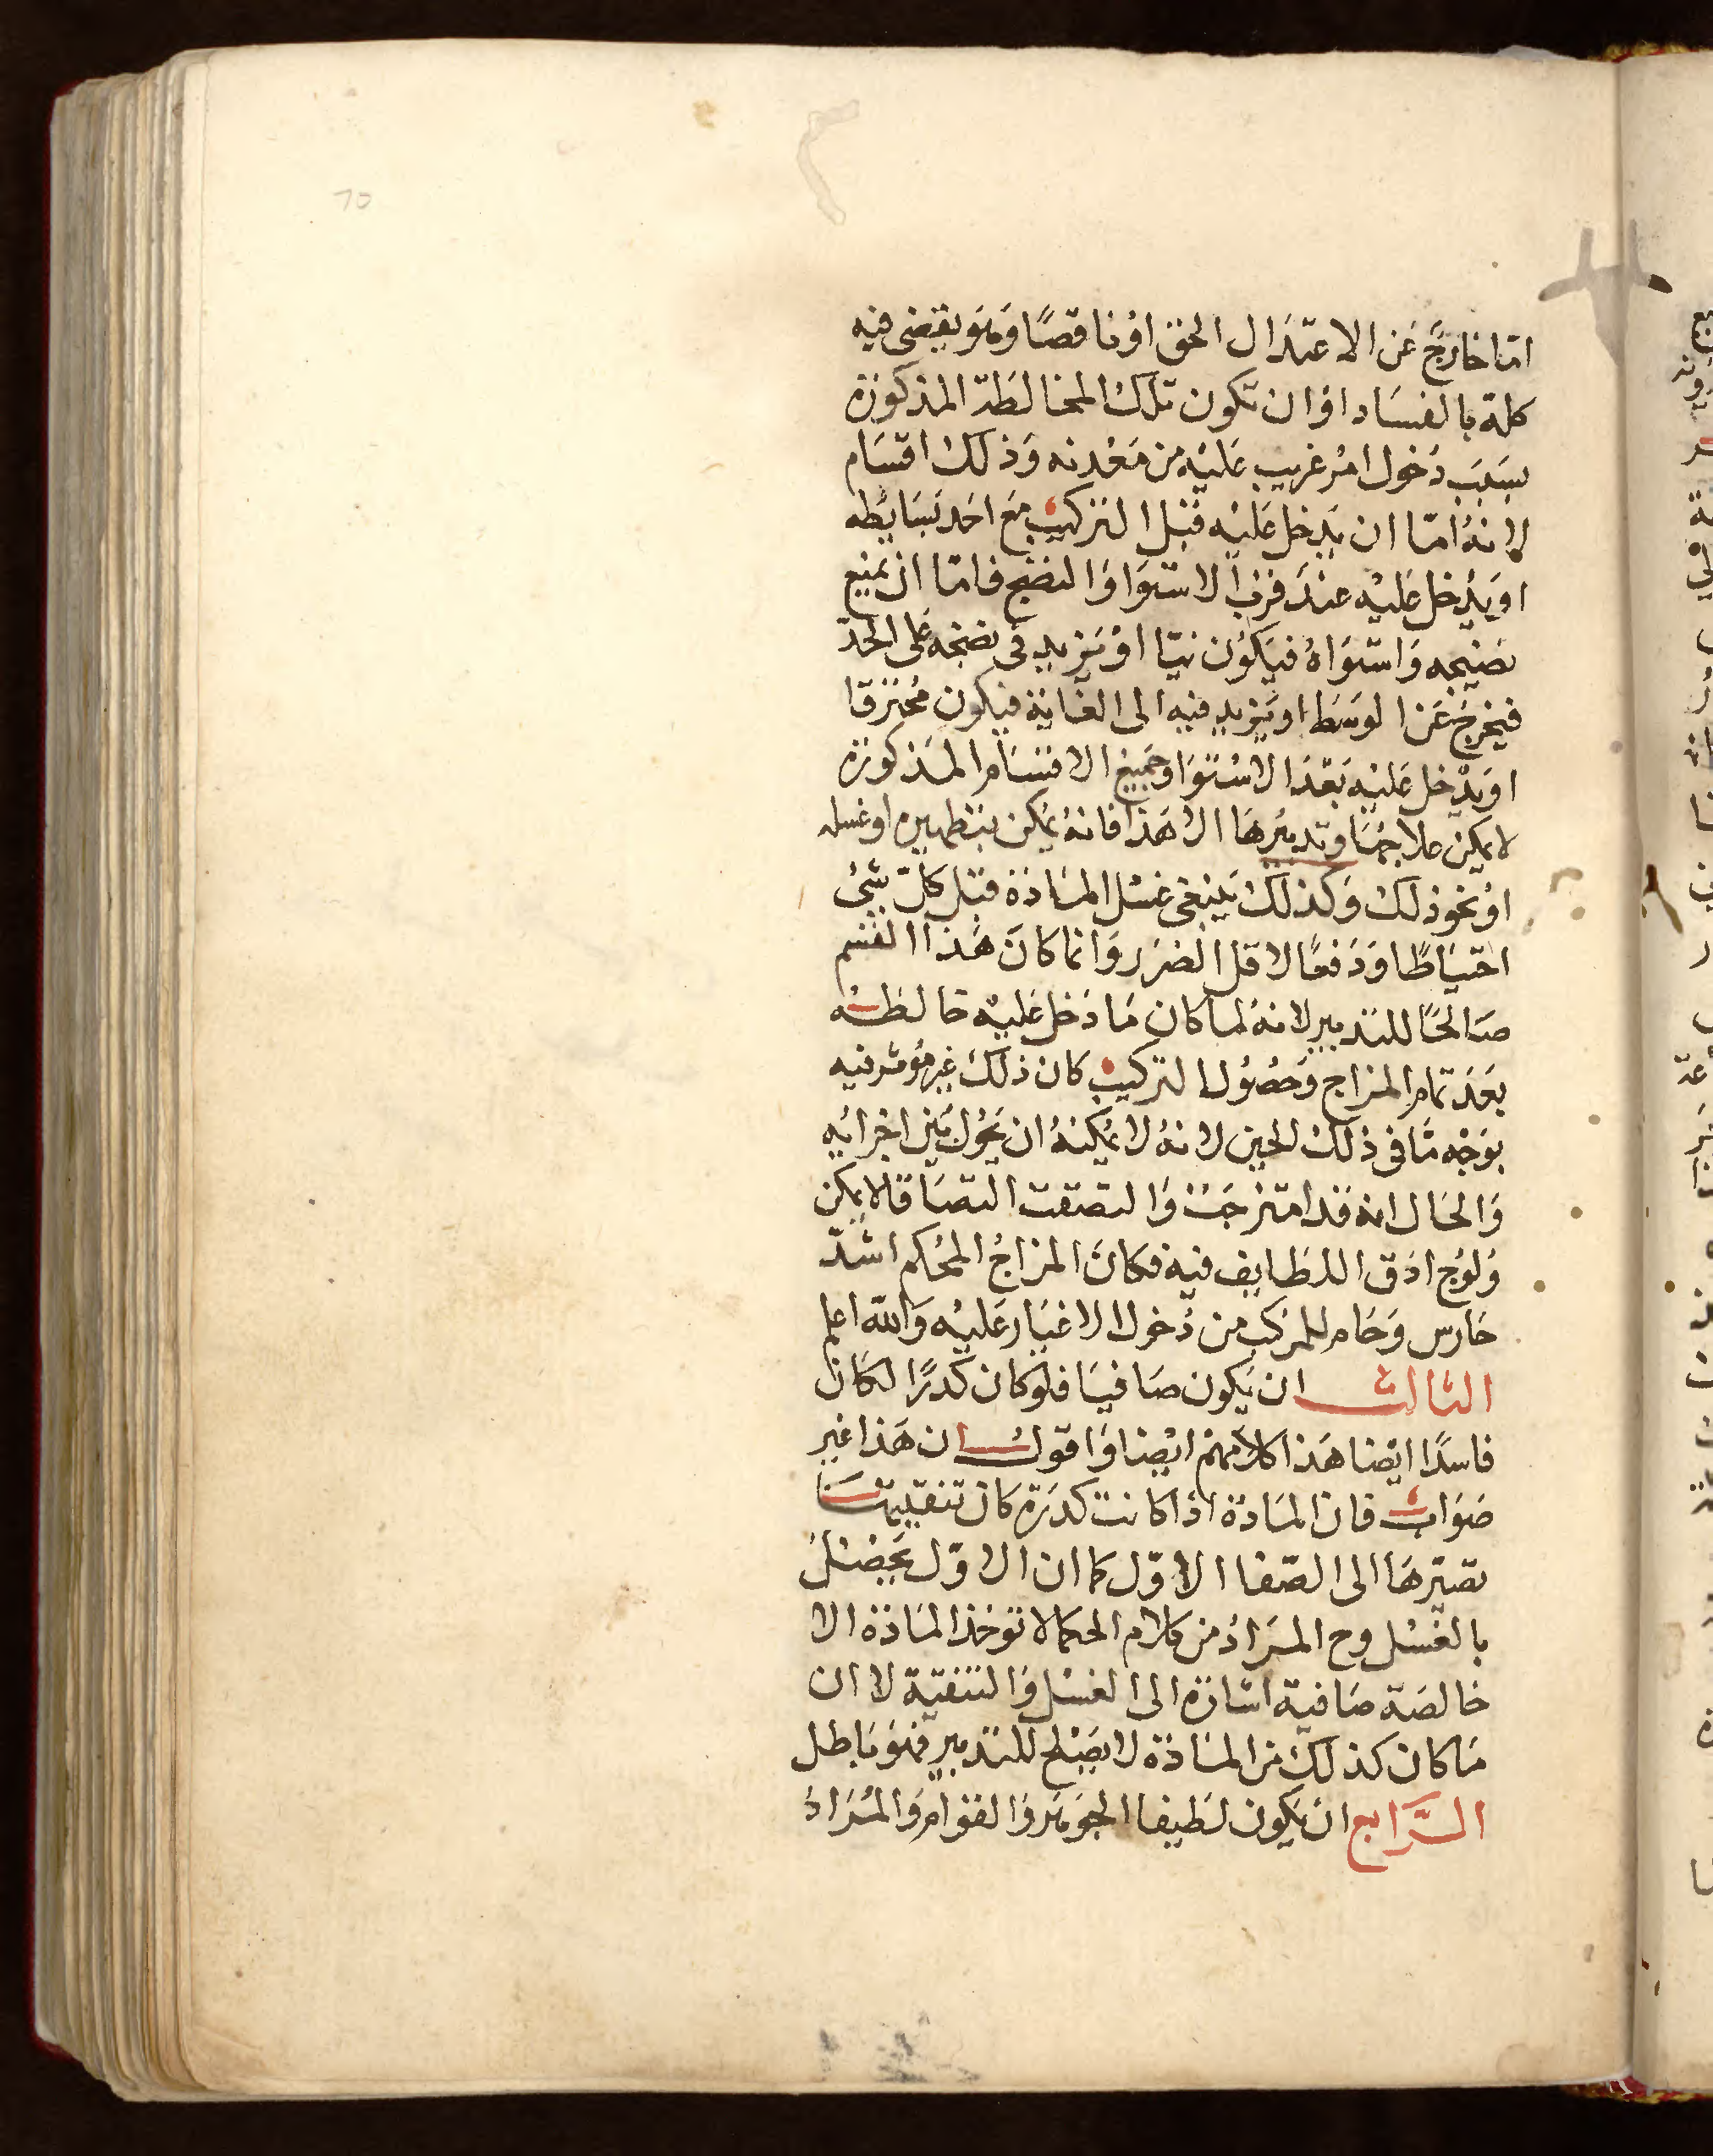 70
اما خارج عن الاعتدال الحق او ناقصا وهو يقضى فيه
كله بالفساد او ان تكون تلك المخالطة المذكورة
بسبب دخول امر غريب عليه من معدنه وذلك اقسام
لانه اما ان يدخل عليه قبل التركيب مع احد بسايطه
او يدخل عليه عند قرب الاستوا والنضج فاما ان يمنع
نضيجه واستواه فيكون نيا او يزيد فى نضجه على الحد
فيخرج عن الوسط او يزيد فيه الى الغاية فيكون محترقا
او يدخل عليه بعد الاستوا وجميع الاقسام المذكورة
لا يمكن علاجها وتدبيرها الا هذا فانه يمكن بتطهيره او غسله
او نحو ذلك وكذلك ينبغى غسل المادة قبل كل شئ
احتياطا ودفعا لاقل الضرر وانما كان هذا القسم
صالحا للتدبير لانه لما كان ما دخل عليه خالطه
بعد تمام المزاج وحصول التركيب كان ذلك غير مؤثر فيه
بوجه ما فى ذلك الحين لانه لا يمكنه ان يحول بين اجزايه
والحال انه قد امتزجت والتصقت التصاقا لا يمكن
ولوج ادق اللطايف فيه فكان المزاج المحكم اشد
حارس وحام للمركب من دخول الاغيار عليه والله اعلم
الثالث ان يكون صافيا فلو كان كدرا لكان
فاسدا ايضا هذا كلامهم ايضا واقول ان هذا غير
صواب فان المادة اذا كانت كدرة كان تنقيتها
تصيرها الى الصفا الاول كما ان الاول يحصل
بالغسل وح المراد من كلام الحكما لا توخذ المادة الا
خالصة صافية اشارة الى الغسل والتنقية لا ان
ما كان كذلك من المادة لا يصلح للتدبير فهو باطل
الرابع ان يكون لطيفا الجوهر والقوام والمراد